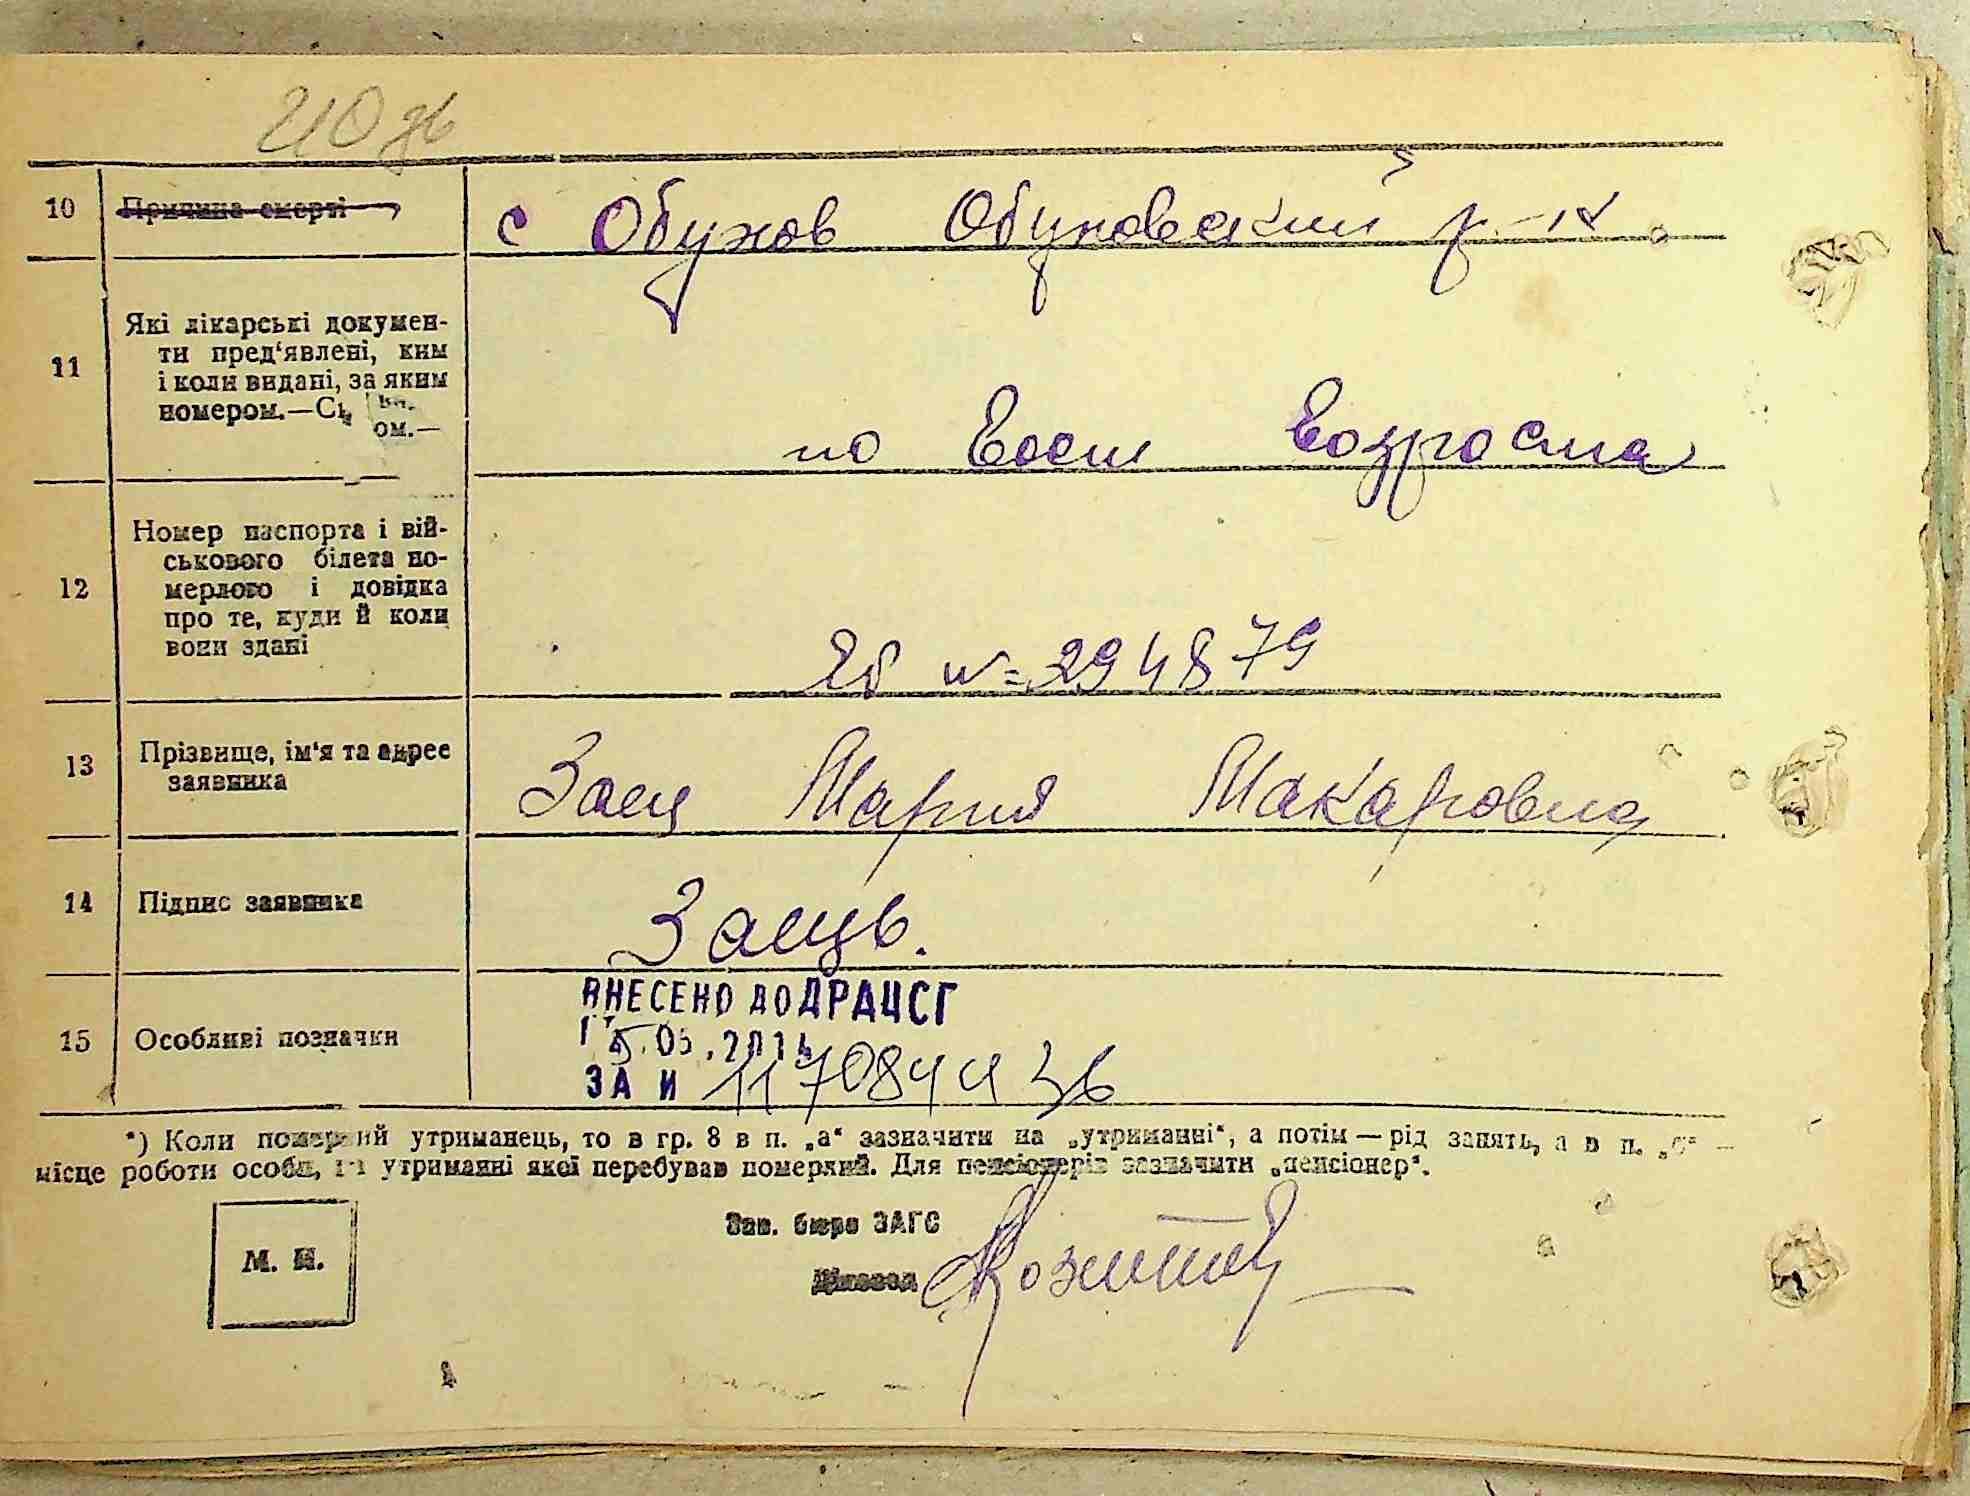 10
Причина смерті
с Обухов Обуховский р-н
11
Які лікарські документи
ти пред'явлені, ким
і коли видані, за яким
номером.—
ом.—
по возраста
12
Номер паспорта і вій-
ськового білета по-
мерлого і довідка
про те, куди й коли
вони здані
№ 294879
13
Прізвище, ім'я та адрес
заявника
Заец Мария Макаровна
14
Підпис заявника
Заець.
15
Особливі позначки
ВНЕСЕНО ДО ДРАЦСГ
ЗА И
*) Коли померлий утриманець, то в гр. 8 в п. „а" зазначити на „утриманні", а потім — рід занять, а в п. „б" —
місце роботи особи, на утриманні якої перебував померлий. Для пенсіонерів зазначити „пенсіонер".
М. П.
Зав. бюро ЗАГС
Діловод